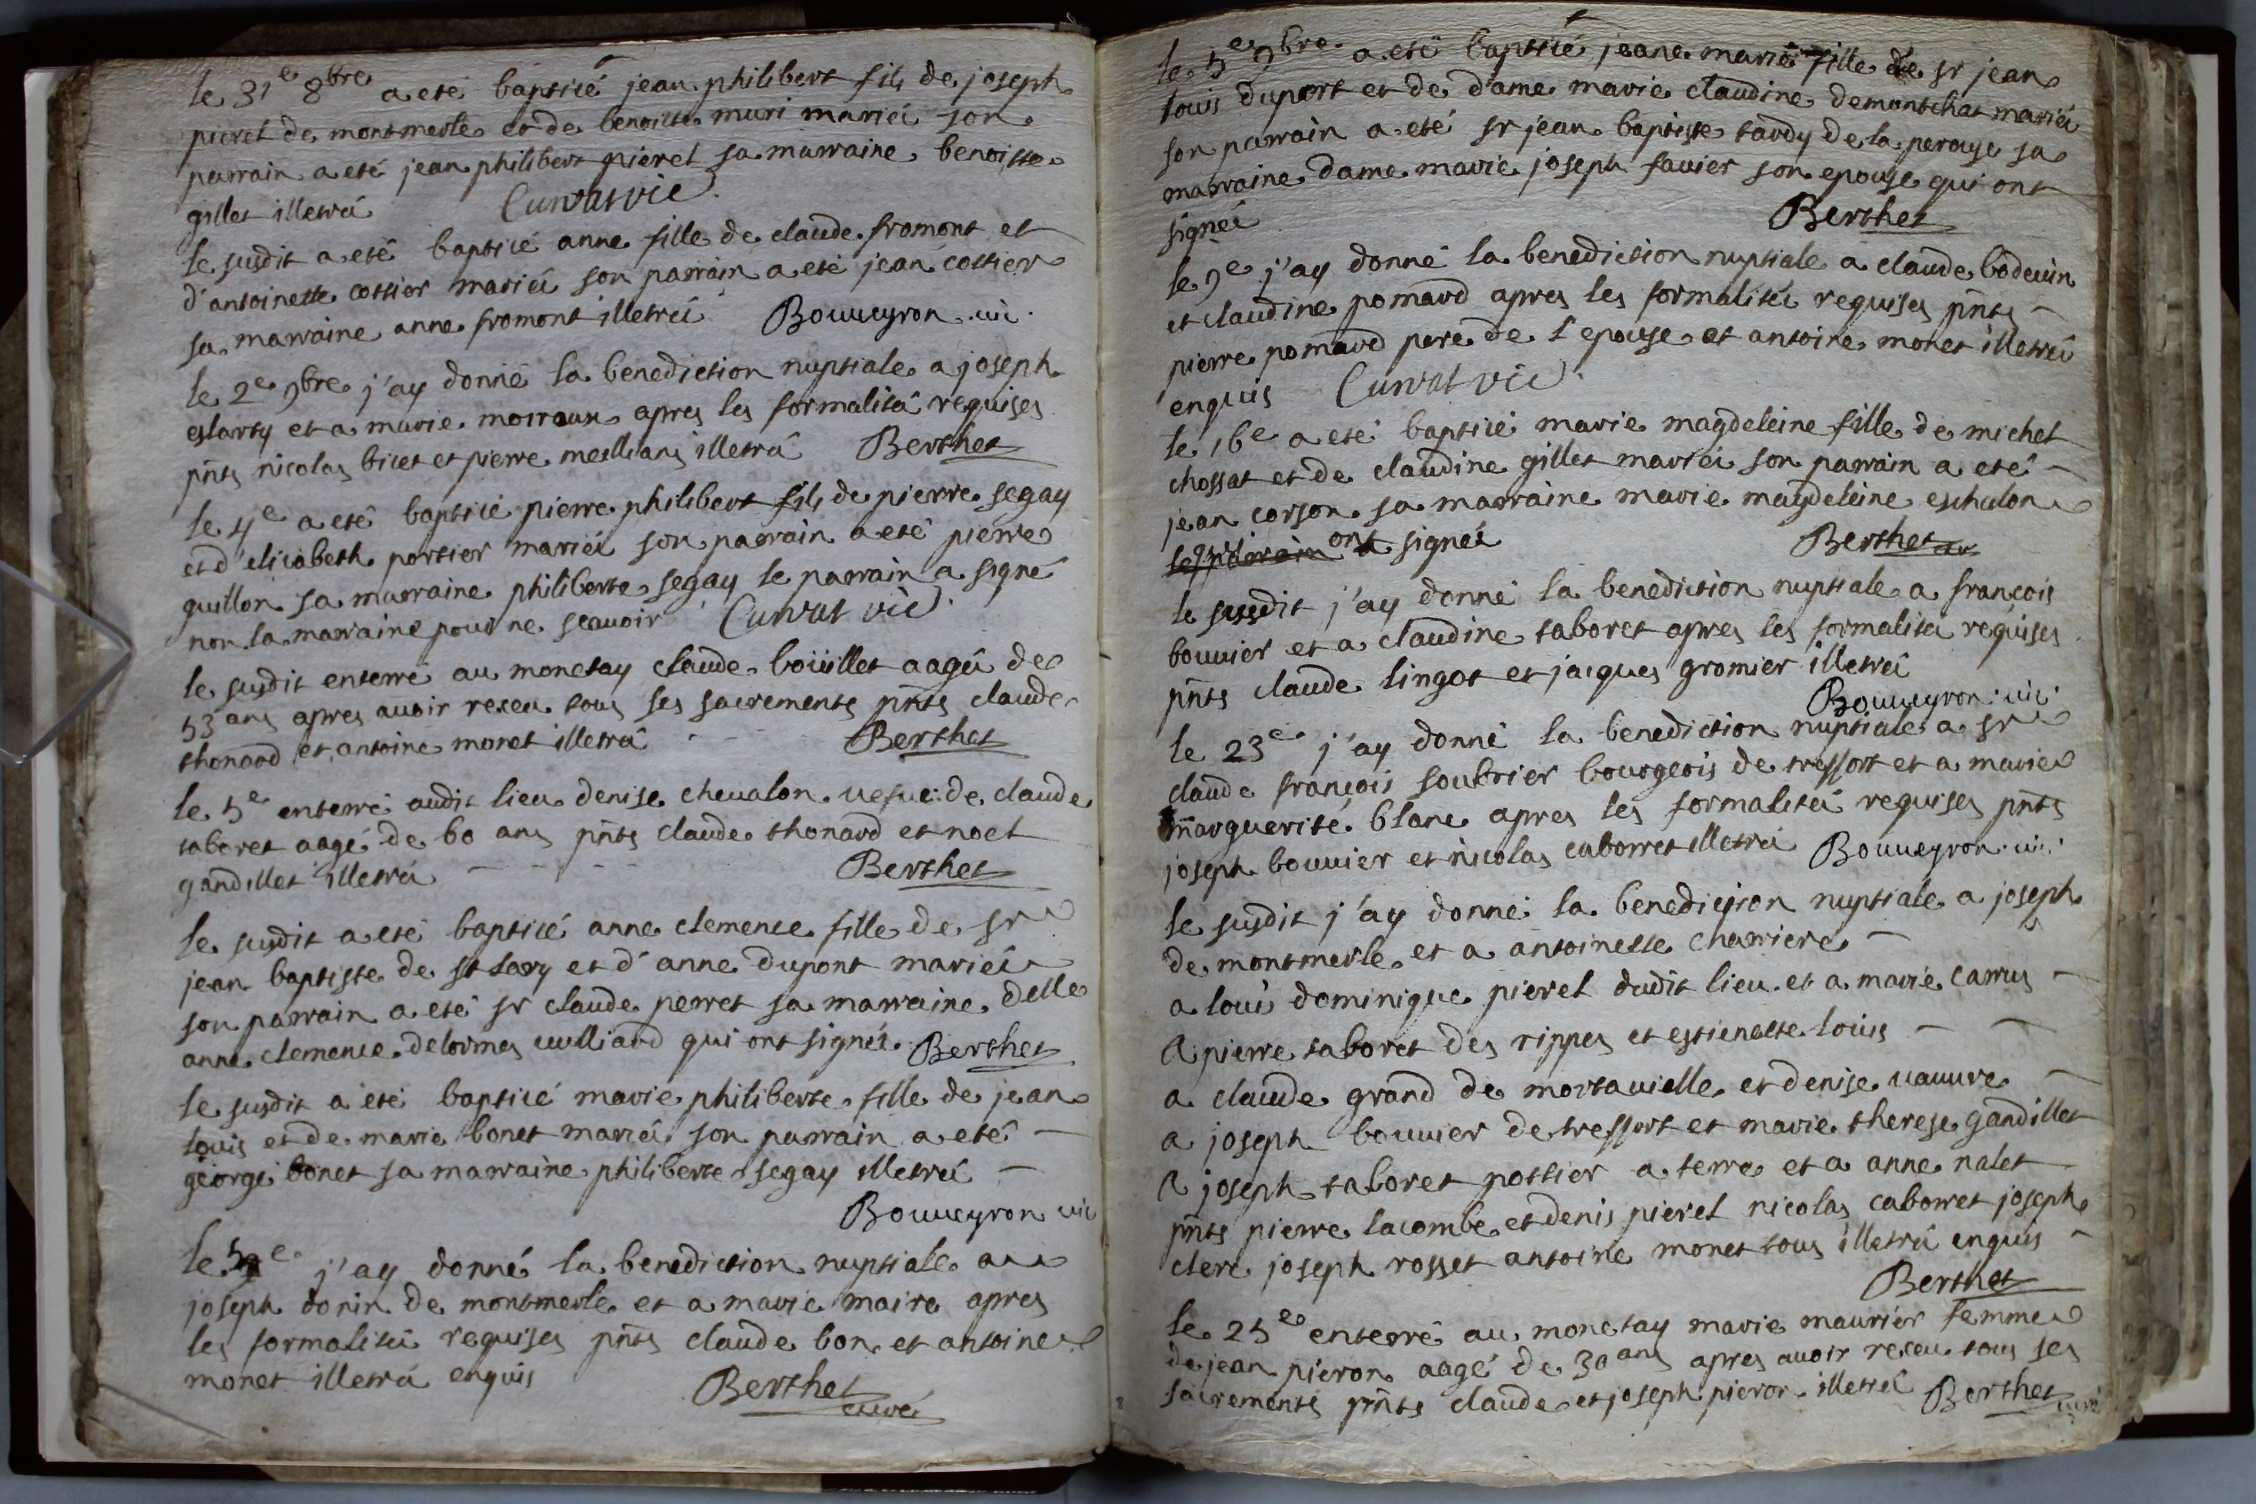 le 31e 8bre a eté bapticé jean philibert fils de joseph
pierel de montmerle et de benoitte muri mariéz son
parrain a eté jean philibert pierel sa marraine benoitte
gillet illetréz Curvat vic.
le susdit a eté bapticé anne fille de claude fromont et
d'antoinette cottier mariéz son parrain a eté jean cottier
sa marraine anne fromont illetréz Bouveyron vic.
le 2e 9bre j'ay donné la benediction nuptiale a joseph
eslarty et a marie moiraux apres les formalitéz requises
pñts nicolas bicet et pierre meillans illetréz Berthet
le 4e a eté bapticé pierre philibert fils de pierre segay
et d'elisabeth portier mariéz son parrain a eté pierre
guillon sa marraine philiberte segay le parrain a signé
non la marraine pour ne scavoir Curvat vic.
le susdit enterré au monetay claude boüillet aagé de
53 ans apres avoir receu tous ses sacrements pñts claude
thonard et antoine monet illetréz Berthet
le 5e enterré audit lieu denise chevalon vefue de claude
taboret aagé de 60 ans pñts claude thonard et noel
gandillet illetréz Berthet
le susdit a eté bapticé anne clemence fille de sr
jean baptiste de st lary et d'anne dupont mariéz
son parrain a eté sr claude perret sa marraine delle
anne clemence delormes vulliard qui ont signéz Berthet
le susdit a eté bapticé marie philiberte fille de jean
louis et de marie bonet mariéz son parrain a eté
george bonet sa marraine philiberte segay illetréz
Bouveyron vic
le e j'ay donné la benediction nuptiale a
joseph donin de montmerle et a marie maire apres
les formalitéz requises pñts claude bon et antoine
monet illetréz enquis Berthet
curé
le 5e 9bre a eté bapticé jeane marie fille de sr jean
louis duport et de dame marie claudine demontchat mariéz
son parrain a eté sr jean baptiste tardy de la perouse sa
marraine dame marie joseph favier son epouse qui ont
signéz Berthet
le 9e j'ay donné la benediction nuptiale a claude bodeuin
et claudine pomard apres les formalitéz requises pñts
pierre pomard pere de l'epouse et antoine monet illetréz
enquis Curvat vic.
le 16e a eté bapticé marie magdeleine fille de michel
chossat et de claudine gillet mariéz son parrain a eté
jean corson sa marraine marie magdeleine eschalon
ont signéz Berthet
le susdit j'ay donné la benediction nuptiale a françois
bouvier et a claudine taboret apres les formalitéz requises
pñts claude lingot et jacques gromier illetréz
Bouveyron vic.
le 23e j'ay donné la benediction nuptiale a sr
claude françois soubrier bourgeois de treffort et a marie
marguerite blanc apres les formalitéz requises pñts
joseph bouvier et nicolas caborret illetréz Bouveyron vic.
le susdit j'ay donné la benediction nuptiale a joseph
de montmerle et a antoinette charriere
a louis dominique pierel dudit lieu et a marie carrus
a pierre taboret des rippes et estienette louis
a claude grand de mortavielle et denise vauvre
a joseph bouvier de treffort et marie therese gandillet
a joseph taboret pottier a terre et a anne nalet
pñts pierre lacombe et denis pierel nicolas caborret joseph
clerc joseph rosset antoine monet tous illetréz enquis
Berthet
le 25e enterré au monetay marie maurier femme
de jean pieron aagé de 30 ans apres avoir receu tous ses
sacrements pñts claude et joseph pieron illetréz Berthet curé